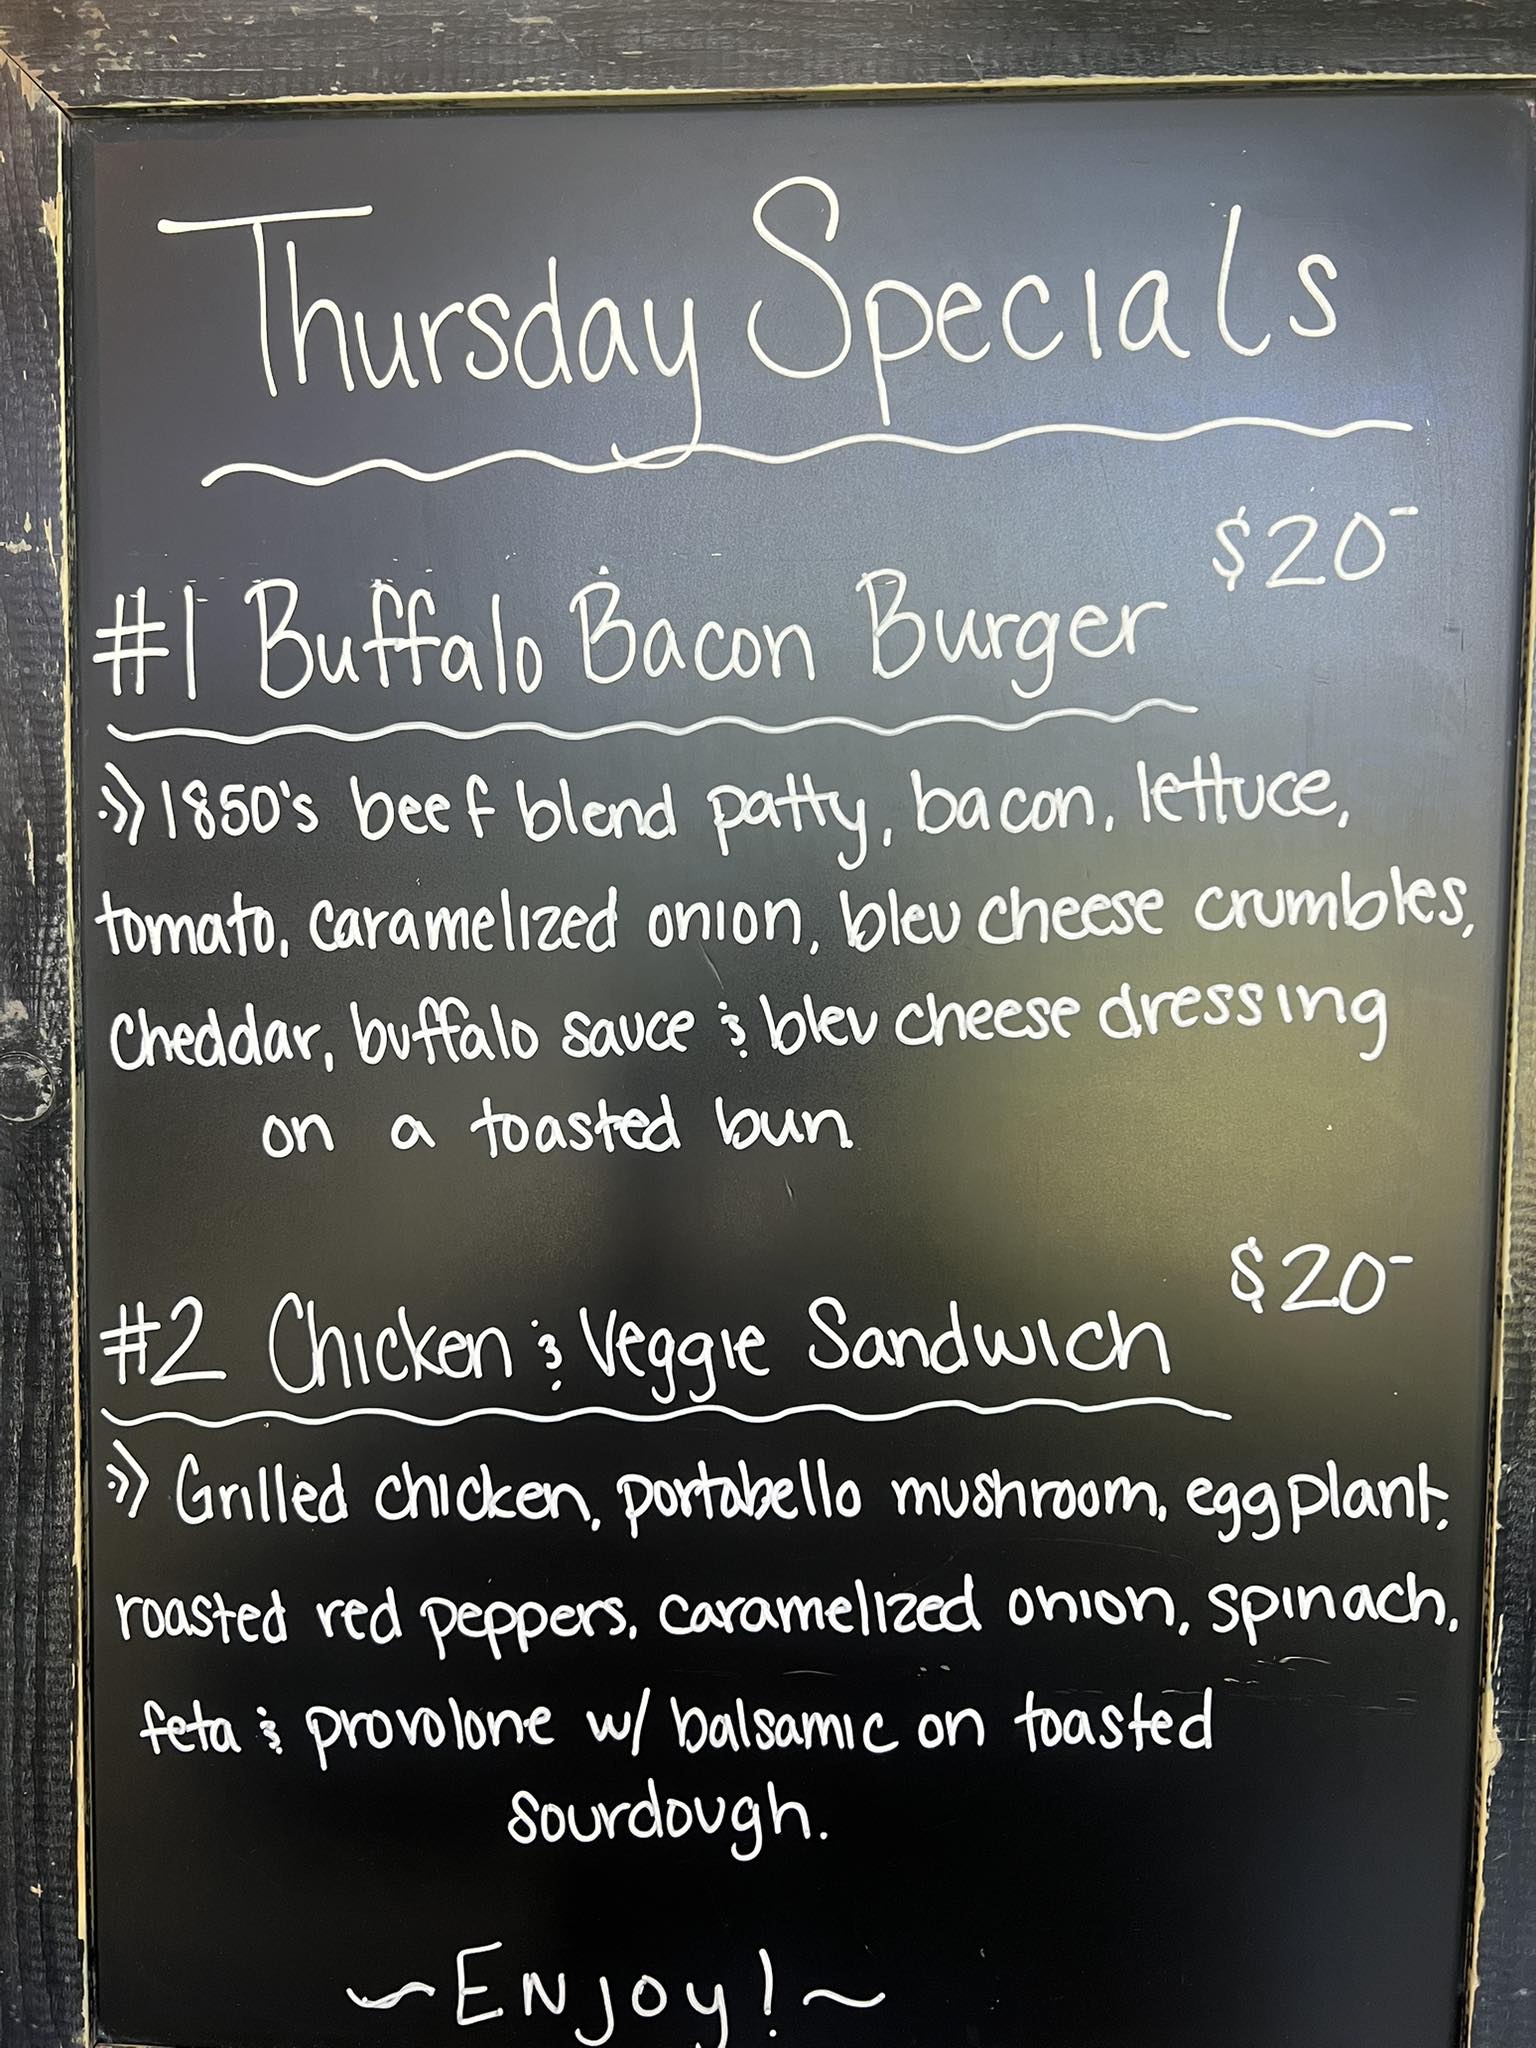 Thursday Specials
$20-
#1 Buffalo Bacon Burger
1850's beef blend patty, bacon, lettuce,
tomato, caramelized onion, bleu cheese crumbles,
cheddar, buffalo sauce & bleu cheese dressing
on a toasted bun.
$20-
#2 Chicken & Veggie Sandwich
Grilled chicken, portabello mushroom, eggplant,
roasted red peppers, caramelized onion, spinach,
feta & provolone w/ balsamic on toasted
sourdough.
~Enjoy!~